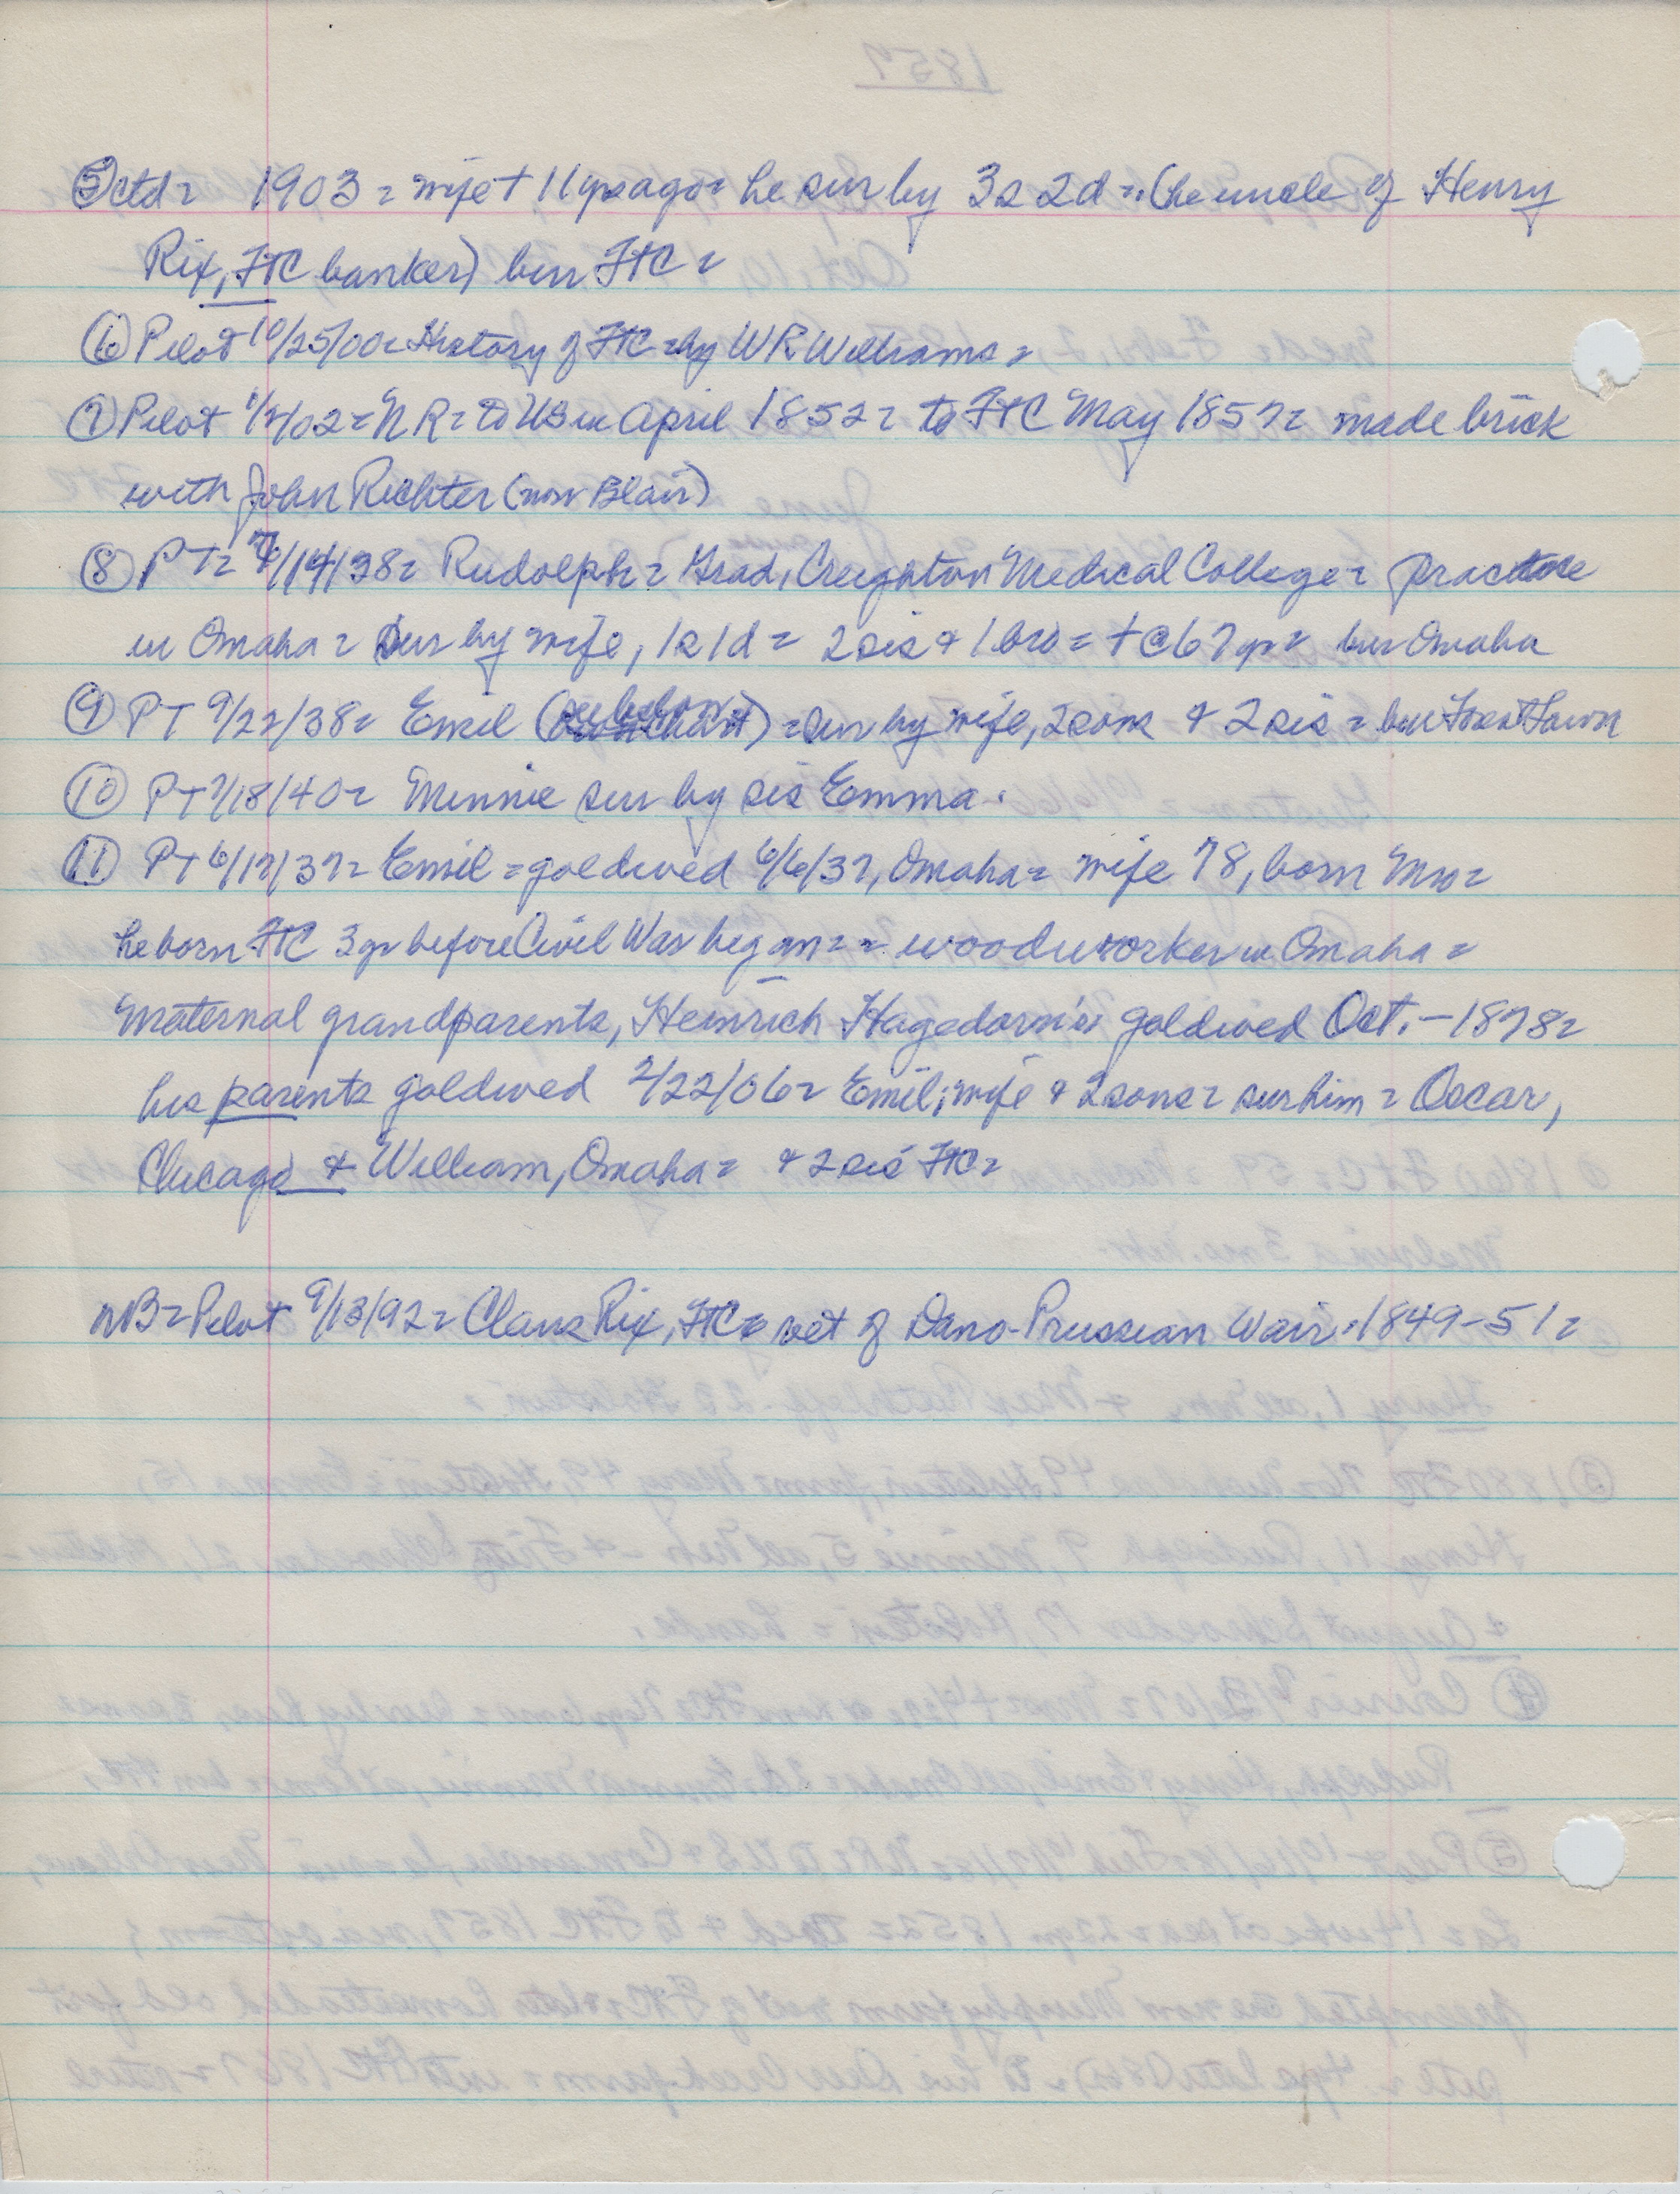 ⑤ctd = 1903 = wife + 11 yrs ago = he sur by 3s 2d = (he uncle of Henry
Rix, FtC banker) bur FtC =
⑥ Pilot 10/25/00 = History of FtC = by WR Williams =
⑦ Pilot 1/2/02 = NR = to US in April 1852 = to FtC May 1857 = made brick
with John Richter (now Blair)
⑧ PT = 4/14/38 = Rudolph = Grad, Creighton Medical College = practice
in Omaha = sur by wife, 1s 1d = 2 sis & 1 bro = + @ 67 yr = bur Omaha
⑨ PT 9/22/38 = Emil = sur by wife, 2 sons & 2 sis = bur Forest Lawn
⑩ PT 7/18/40 = Minnie sur by sis Emma.
⑪ PT 6/17/37 = Emil = goldwed 6/6/37, Omaha = wife 78, born Mo =
he born FtC 3 yr before Civil War began = = woodworker in Omaha =
Maternal grandparents, Heinrich Hagedorn's goldwed Oct. - 1878 =
his parents goldwed 2/22/06 = Emil; wife & 2 sons = sur him = Oscar,
Chicago & William, Omaha = & 2 sis FtC =
NB = Pilot 9/13/92 = Claus Rix, FtC = vet of Dano-Prussian War. 1849-51 =